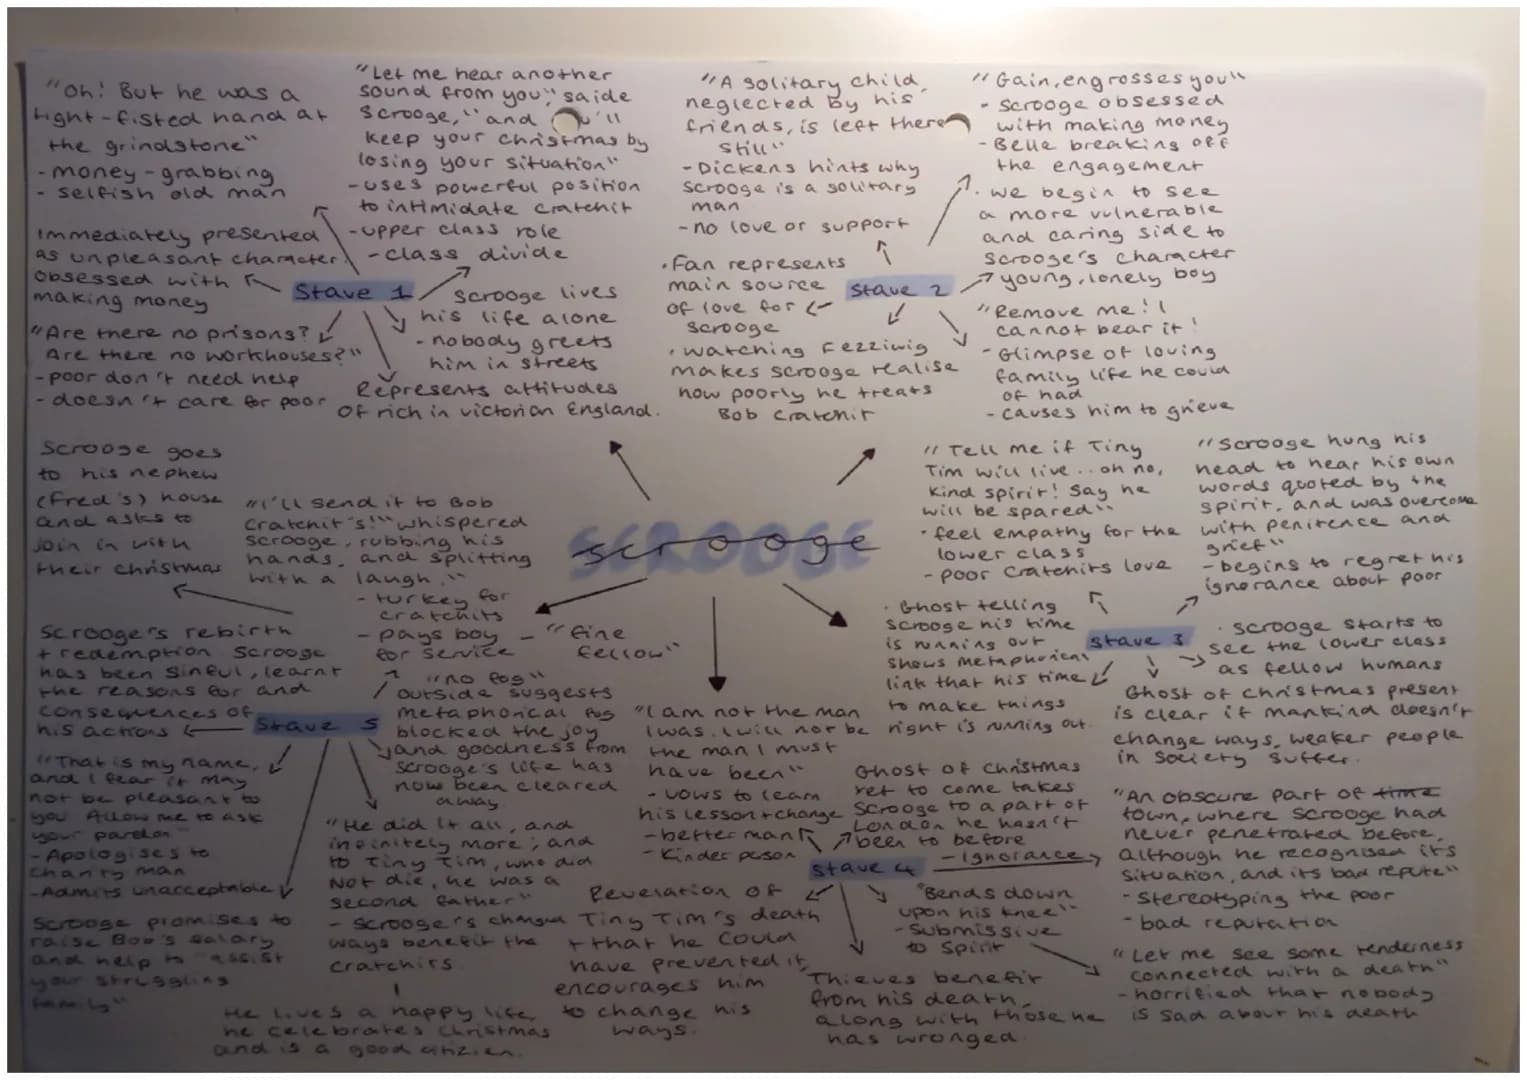 "Oh! But he was a
tight-fisted hand at
the grindstone"
- money-grabbing
- selfish old man
Immediately presented
as unpleasant character.
Obsessed with
making money
"Are there no prisons?
Are there no workhouses?"
- poor don't need help
- doesn't care for poor
"Let me hear another
sound from you", saide
Scrooge, "and u'll
keep your christmas by
losing your situation"
- uses powerful position
to intimidate cratchit
- upper class role
- class divide
Stave 1
Scrooge lives
his life alone
- nobody greets
him in streets
Represents attitudes
Of rich in victorian England.
"A solitary child,
neglected by his
friends, is left there
still"
- Dickens hints why
Scrooge is a solitary
man
- no love or support
· Fan represents
main source
of love for
scrooge
· watching Fezziwig
makes scrooge realise
how poorly he treats
Bob Cratchit
Stave 2
"Gain, engrosses you"
- Scrooge obsessed
with making money
- Belle breaking off
the engagement
· we begin to see
a more vulnerable
and caring side to
Scrooge's character
young, lonely boy
"Remove me! I
cannot bear it!
- Glimpse of loving
family life he could
of had
- causes him to grieve
SCROOGE
scrooge
Scrooge goes
to his nephew
(Fred's) house
and asks to
join in with
their christmas
"I'll send it to Bob
Cratchit's!" whispered
Scrooge, rubbing his
hands, and splitting
with a laugh."
- turkey for
cratchits
- pays boy - "fine
for service fellow"
Scrooge's rebirth
+ redemption Scrooge
has been sinful, learnt
the reasons for and
consequences of
his actions
Stave 5
"no fog"
outside suggests
metaphorical fog
blocked the joy
and goodness from
Scrooge's life has
now been cleared
away.
"That is my name,
and I fear it may
not be pleasant to
you Allow me to ask
your pardon"
- Apologises to
charity man
- Admits unacceptable
Scrooge promises to
raise Bob's salary
and help to "assist
your struggling
family"
"He did it all, and
infinitely more; and
to Tiny Tim, who did
Not die, he was a
second father"
- Scrooge's changed
ways benefit the
cratchits
He lives a happy life,
he celebrates christmas
and is a good citizien.
"Tell me if Tiny
Tim will live .. oh no,
kind spirit! Say he
will be spared"
· feel empathy for the
lower class
- poor Cratchits love
"Scrooge hung his
head to hear his own
words quoted by the
spirit, and was overcome
with penitence and
grief"
- begins to regret his
ignorance about poor
Stave 3
· Ghost telling
Scrooge his time
is running out
shows metaphorical
link that his time
to make things
right is running out.
· scrooge starts to
see the lower class
as fellow humans
Ghost of christmas present
is clear if mankind doesn't
change ways, weaker people
in society suffer.
"I am not the man
I was. I will not be
the man I must
have been"
- vows to learn
his lesson + change
- better man
- Kinder person
Ghost of Christmas
yet to come takes
Scrooge to a part of
London he hasn't
been to before
- Ignorance
Stave 4
"An obscure part of time
town, where Scrooge had
never penetrated before,
although he recognised its
situation, and its bad repute"
- Stereotyping the poor
- bad reputation
Revelation of
Tiny Tim's death
+ that he could
have prevented it,
encourages him
to change his
ways.
"Bends down
upon his knee"
- Submissive
to Spirit
Thieves benefit
from his death,
along with those he
has wronged.
"Let me see some tenderness
connected with a death"
- horrified that nobody
is sad about his death